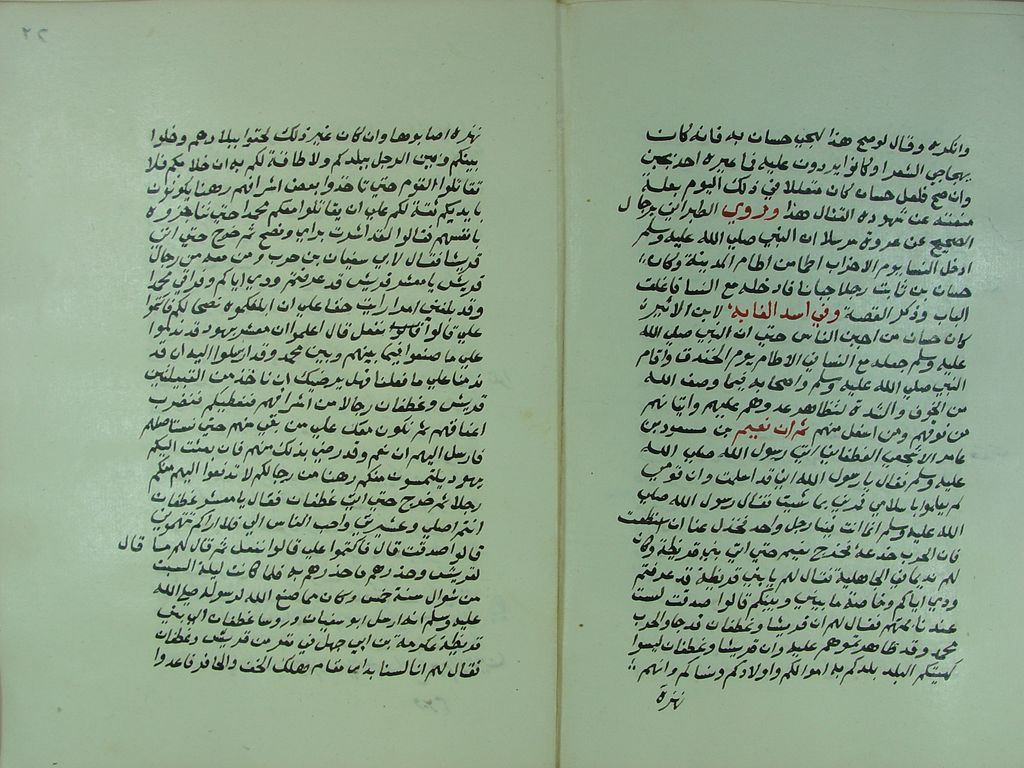 وانكره وقال لوصح هذا لهجي حسان به فانه كان
يهاجي الشعرا وكانوا يردون عليه فما عيره احد بجبن
وان صح فلعل حسان كان متعللا في ذلك اليوم بعلة
منعته عن شهوده القتال هذا وروي الطبراني برجال
الصحيح عن عروة مرسلا ان النبي صلي الله عليه وسلم
ادخل النسا يوم الاحزاب اطما من اطام المدينة وكان
حسان بن ثابت رجلا جبانا فادخله مع النسا فاغلق
الباب وذكر القصة وفي اسد الغابة لابن الاثير
كان حسان من اجبن الناس حتي ان النبي صلي الله
عليه وسلم جعله مع النسا في الاطام يوم الخندق واقام
النبي صلي الله عليه وسلم واصحابه فيما وصف الله
من الخوف والشدة لتظاهر عدوهم عليهم واتيانهم
من فوقهم ومن اسفل منهم ثم ان نعيم بن مسعود بن
عامر الاشجعي الغطفاني اتي رسول الله صلي الله
عليه وسلم فقال يا رسول الله اني قد اسلمت وان قومي
لم يعلموا باسلامي فمرني بما شئت فقال رسول الله صلي
الله عليه وسلم انما انت فينا رجل واحد فخذل عنا ان استطعت
فان الحرب خدعة فخرج نعيم حتي اتي بني قريظة وكان
لهم نديما في الجاهلية فقال لهم يا بني قريظة قد عرفتم
ودي اياكم وخاصة ما بيني وبينكم قالوا صدقت لست
عندنا بمتهم فقال لهم ان قريشا وغطفان قد جاوا لحرب
محمد وقد ظاهرتموهم عليه وان قريشا وغطفان ليسوا
كهيئتكم البلد بلدكم به اموالكم واولادكم ونساكم وانهم
نهزة
نهزة اصابوها وان كان غير ذلك لحقوا ببلادهم وخلوا
بينكم وبين الرجل ببلدكم ولا طاقة لكم به ان خلا بكم فلا
تقاتلوا القوم حتي تاخذوا بعض اشرافهم رهنا يكونون
بايديكم ثقة لكم علي ان يقاتلوا معكم محمدا حتي تناجزوه
بانفسهم فقالوا لقد اشرت براي ونصح ثم خرج حتي اتي
قريشا فقال لابي سفيان بن حرب ومن معه من رجال
قريش يا معشر قريش قد عرفتم ودي اياكم وفراقي محمدا
وقد بلغني امر رايت حقا علي ان ابلغكموه نصحا لكم فاكتموا
علي قالوا نفعل قال اعلموا ان معشر يهود قد ندموا
علي ما صنعوا فيما بينهم وبين محمد وقد ارسلوا اليه ان قد
ندمنا علي ما فعلنا فهل يرضيك ان ناخذ من القبيلتين
قريش وغطفان رجالا من اشرافهم فنعطيكم فتضرب
اعناقهم ثم نكون معك علي من بقي منهم حتي نستاصلهم
فارسل اليهم ان نعم وقد رضي بذلك منهم فان بعثت اليكم
يهود يلتمسون منكم رهنا من رجالكم لا تدفعوا اليهم منكم
رجلا ثم خرج حتي اتي غطفان فقال يا معشر غطفان
انتم اصلي وعشيرتي واحب الناس الي فلا اراكم تتهموني
قالوا صدقت قال فاكتموا علي قالوا نفعل ثم قال لهم ما قال
لقريش وحذرهم ما حذرهم به فلما كانت ليلة السبت
من شوال سنة خمس وكان مما صنع الله لرسوله صلي الله
عليه وسلم انه ارسل ابو سفيان وروسا غطفان الي بني
قريظة عكرمة بن ابي جهل في نفر من قريش وغطفان
فقال لهم انا لسنا بدار مقام هلك الخف والحافر فاعدوا